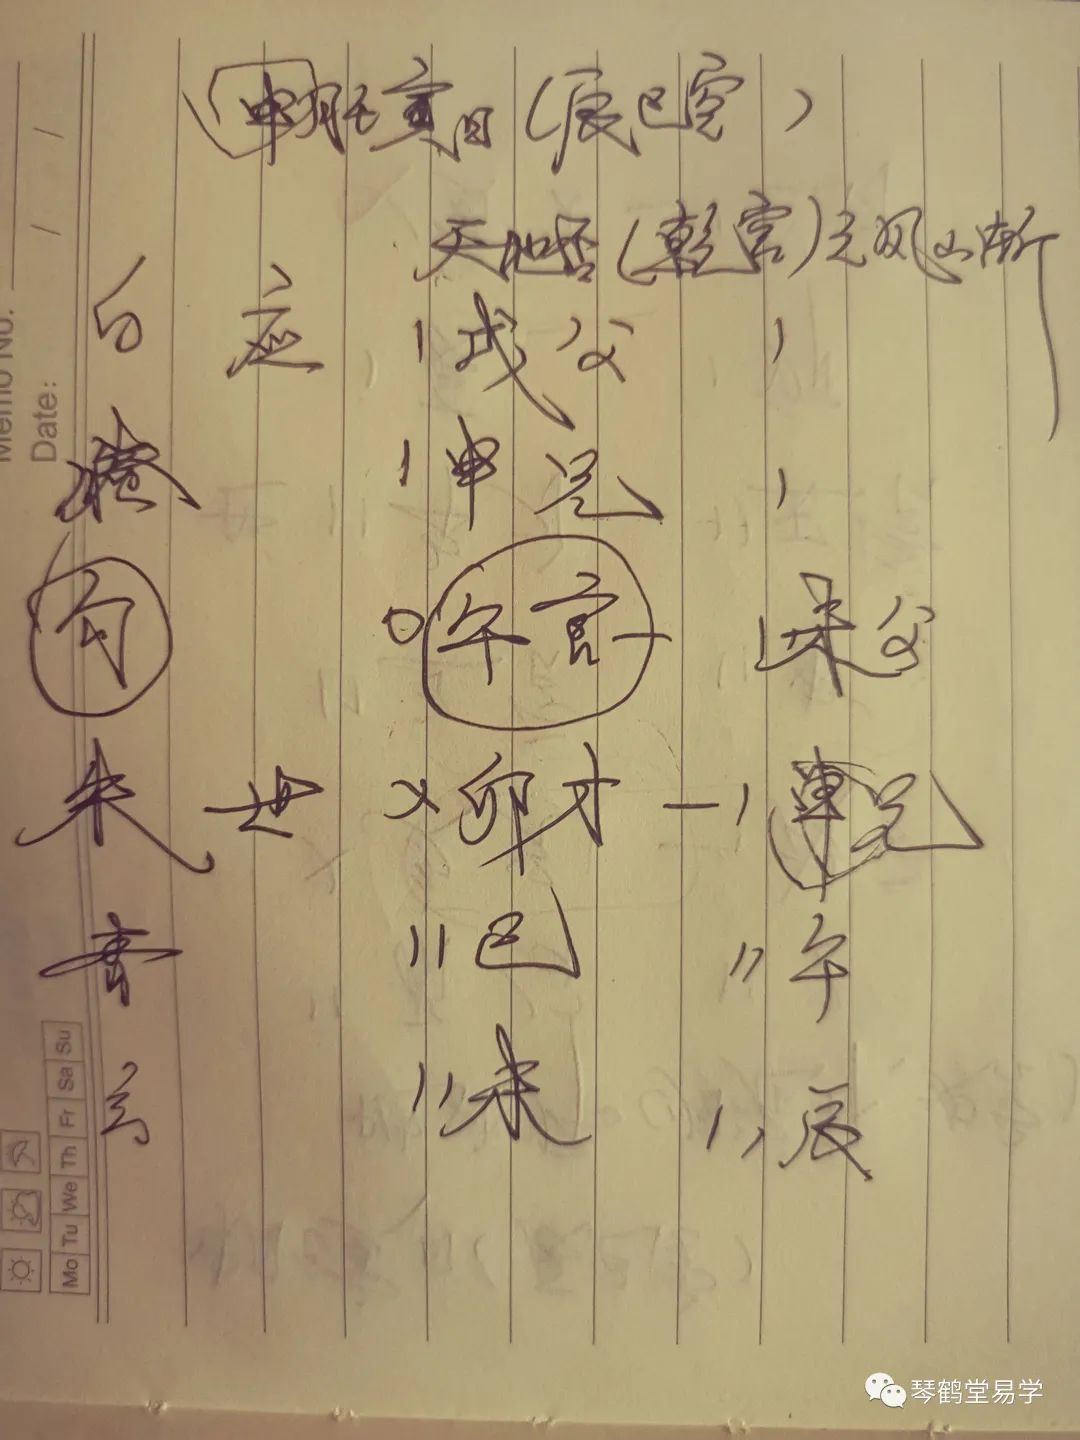 申月壬寅日(辰巳空)
天地否(乾宫)之风山渐
白 应 丨戌父 丨
螣 丨申兄 丨
勾 O午官— 丨未父
朱 世 X卯才—丨申兄
青 丨丨巳 丨丨午
玄 丨丨未 丨丨辰
Memo No.
Date: / /
Mo Tu We Th Fr Sa Su
琴鹤堂易学